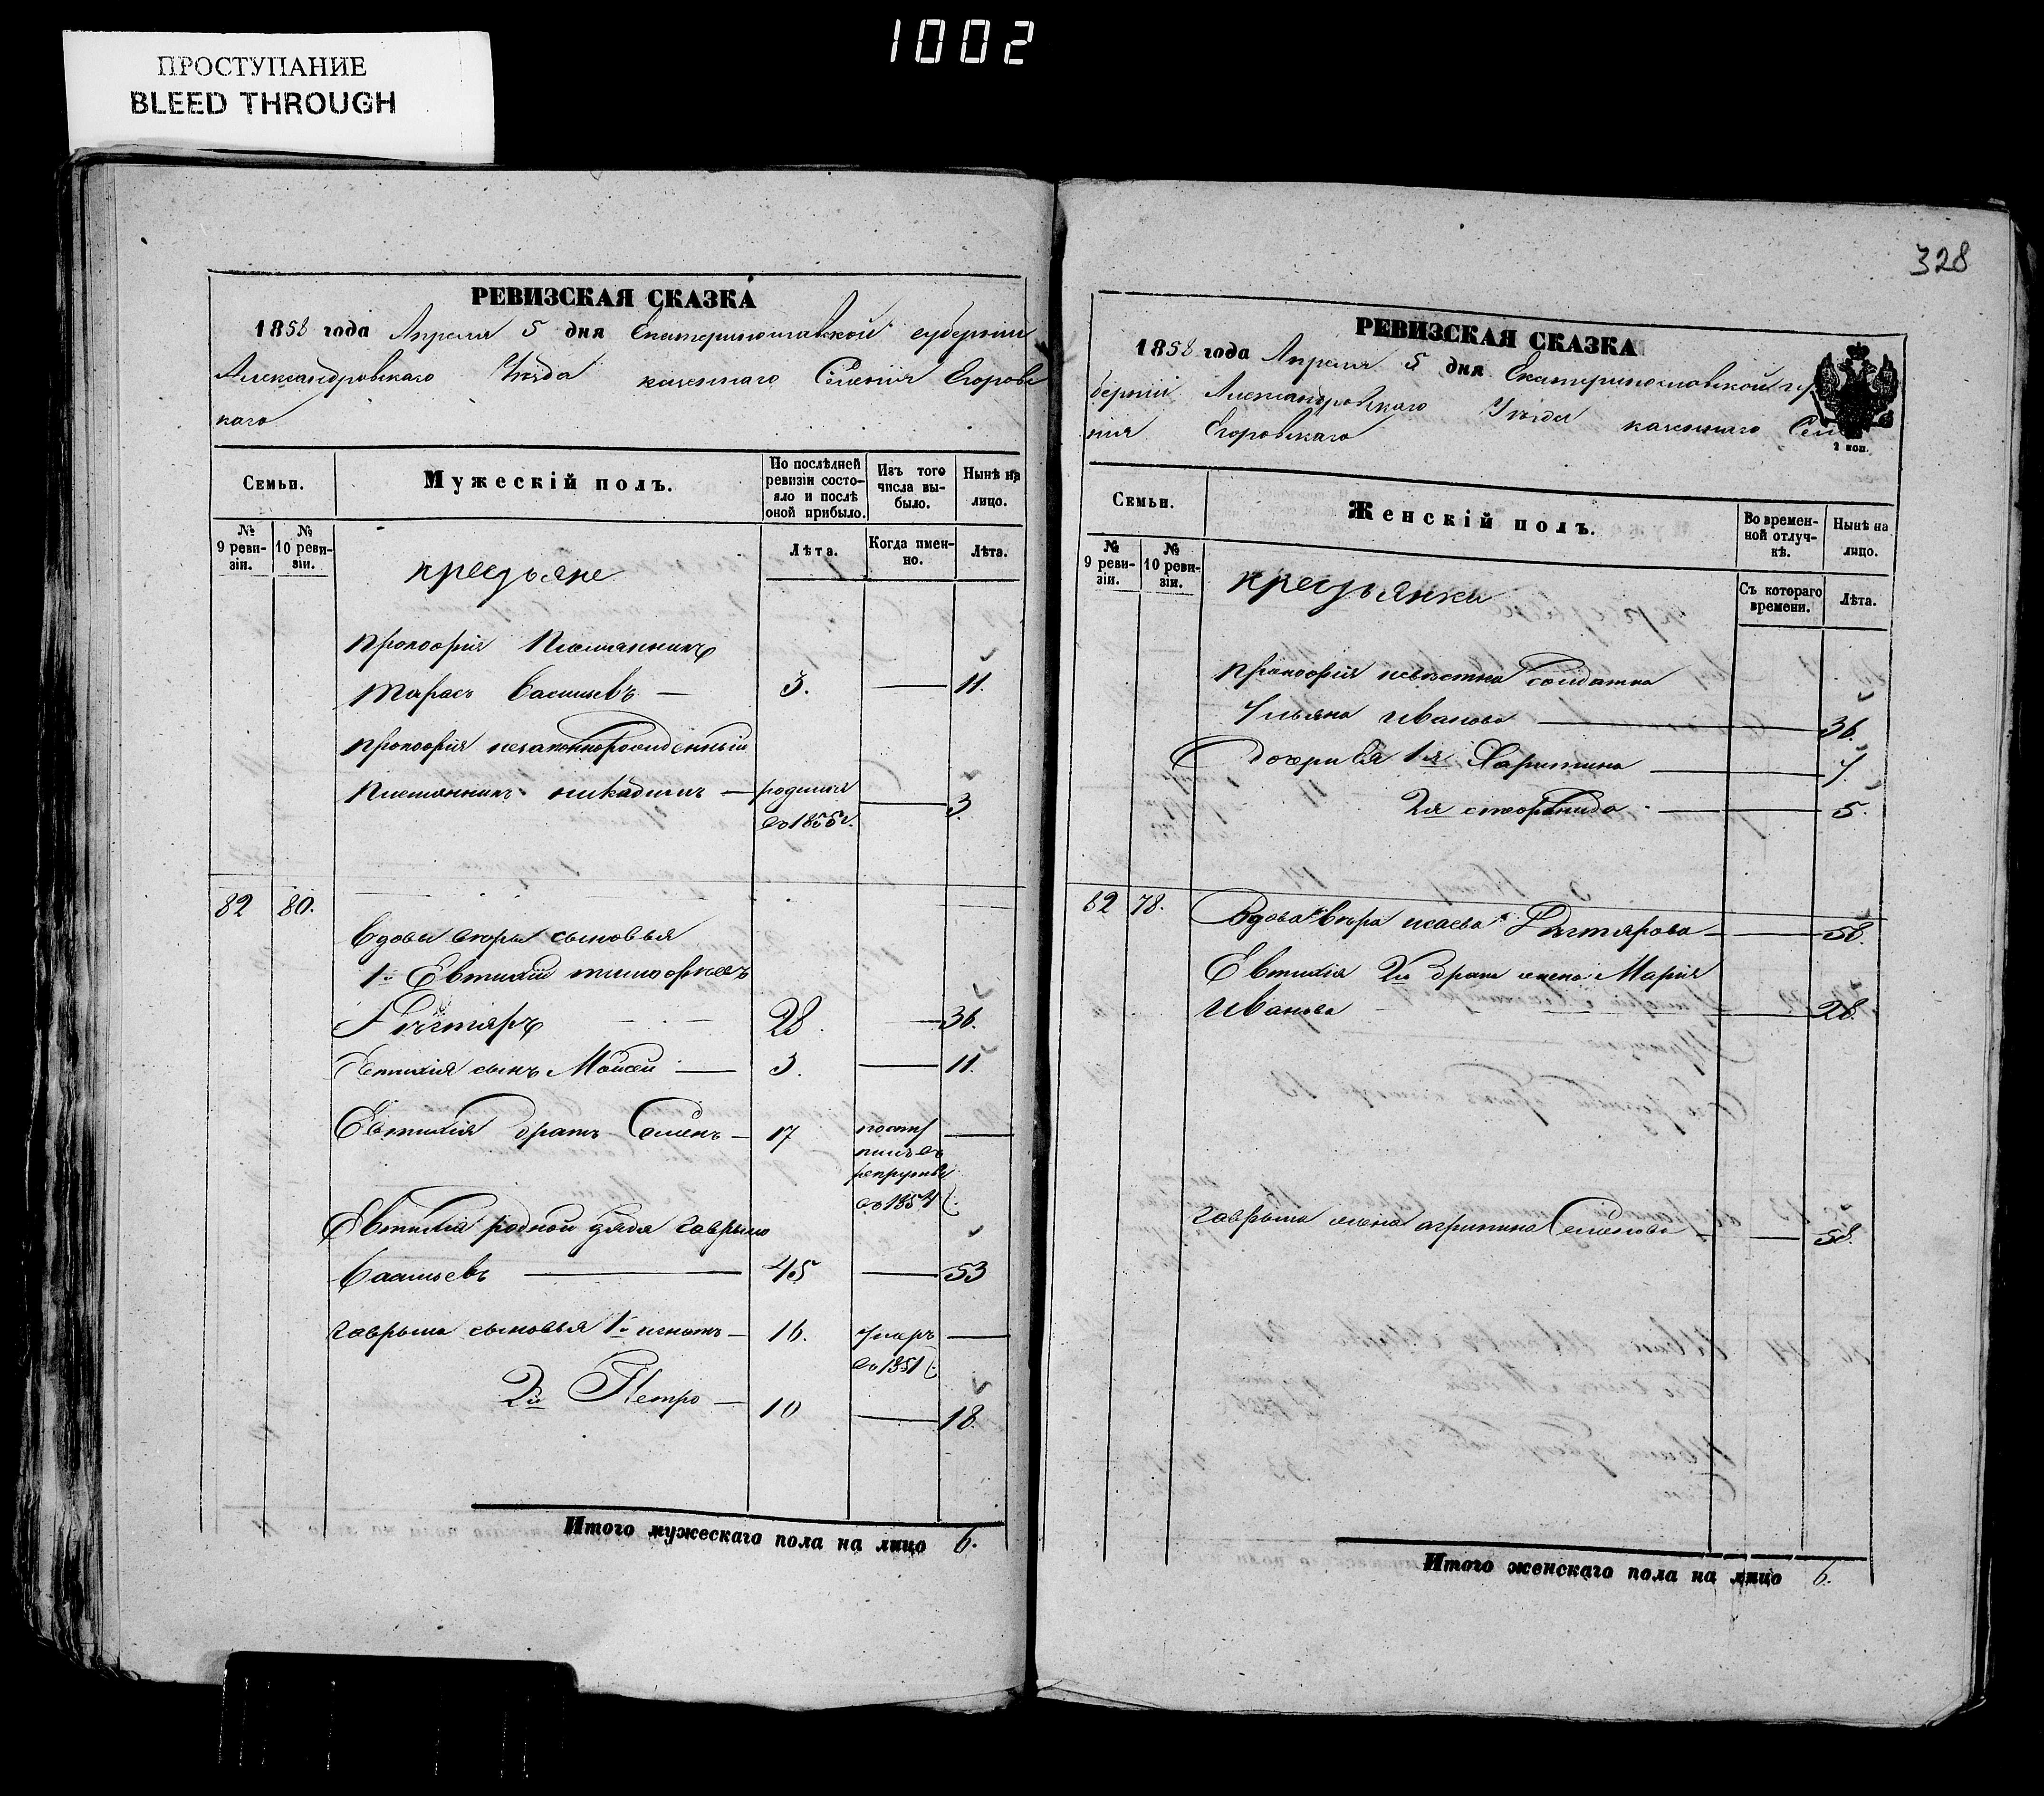 1002
ПРОСТУПАНИЕ
BLEED THROUGH
РЕВИЗСКАЯ СКАЗКА
1858 года Апреля 5 дня Екатеринославской губернии
Александровскаго Уезда казеннаго Селения Егоровс
каго
Семьи.
Мужескій полъ.
По послѣдней ревизіи состо-
яло и послѣ
оной прибыло.
Изъ того
числа вы-
было.
Нынѣ на
лицо.
№
9 реви-
зіи.
№
10 реви-
зіи.
Лѣта.
Когда имен-
но.
Лѣта.
крестьяне
Прокофія Племянникъ
Тарасъ Васильевъ — 3. — 11.
Прокофія незаконнорожденный
Племянникъ Никодимъ — родился — 3
въ 1855 г.
82 80.
Вдовы Веры сыновья
1й Евтихій Тимофеевъ
28. — 36.
Евтихія сынъ Моисей — 3. — 11.
Евтихія братъ Семенъ — 17 посту —
пилъ въ
рекруты
въ 1854
Евтихія родной дядя Гаврыло
Васильевъ — 45 — 53
Гаврыла сыновья 1й Игнатъ — 16. умеръ —
въ 1851
2й Петро — 10 — 18.
Итого мужескаго пола на лицо 6.
328
РЕВИЗСКАЯ СКАЗКА
1858 года Апреля 5 дня Екатеринославской гу
берніи Александровскаго Уезда казеннаго Селе
нія Егоровскаго
2 коп.
Семьи.
Женскій полъ.
Во времен-
ной отлуч-
кѣ.
Нынѣ на
лицо.
№
9 реви-
зіи.
№
10 реви-
зіи.
Съ котораго
времени.
Лѣта.
крестьянки
Прокофія невестка солдатка
Ульяна Иванова — 36.
Дочери Ея 1я Харитина — 7
2я — 5.
82 78.
Вдова Вера Исаева — 58.
Евтихія 2го брака жена Марія
Иванова — 28.
Гаврыла жена Агрипина Семенова — 58.
Итого женскаго пола на лицо 6.